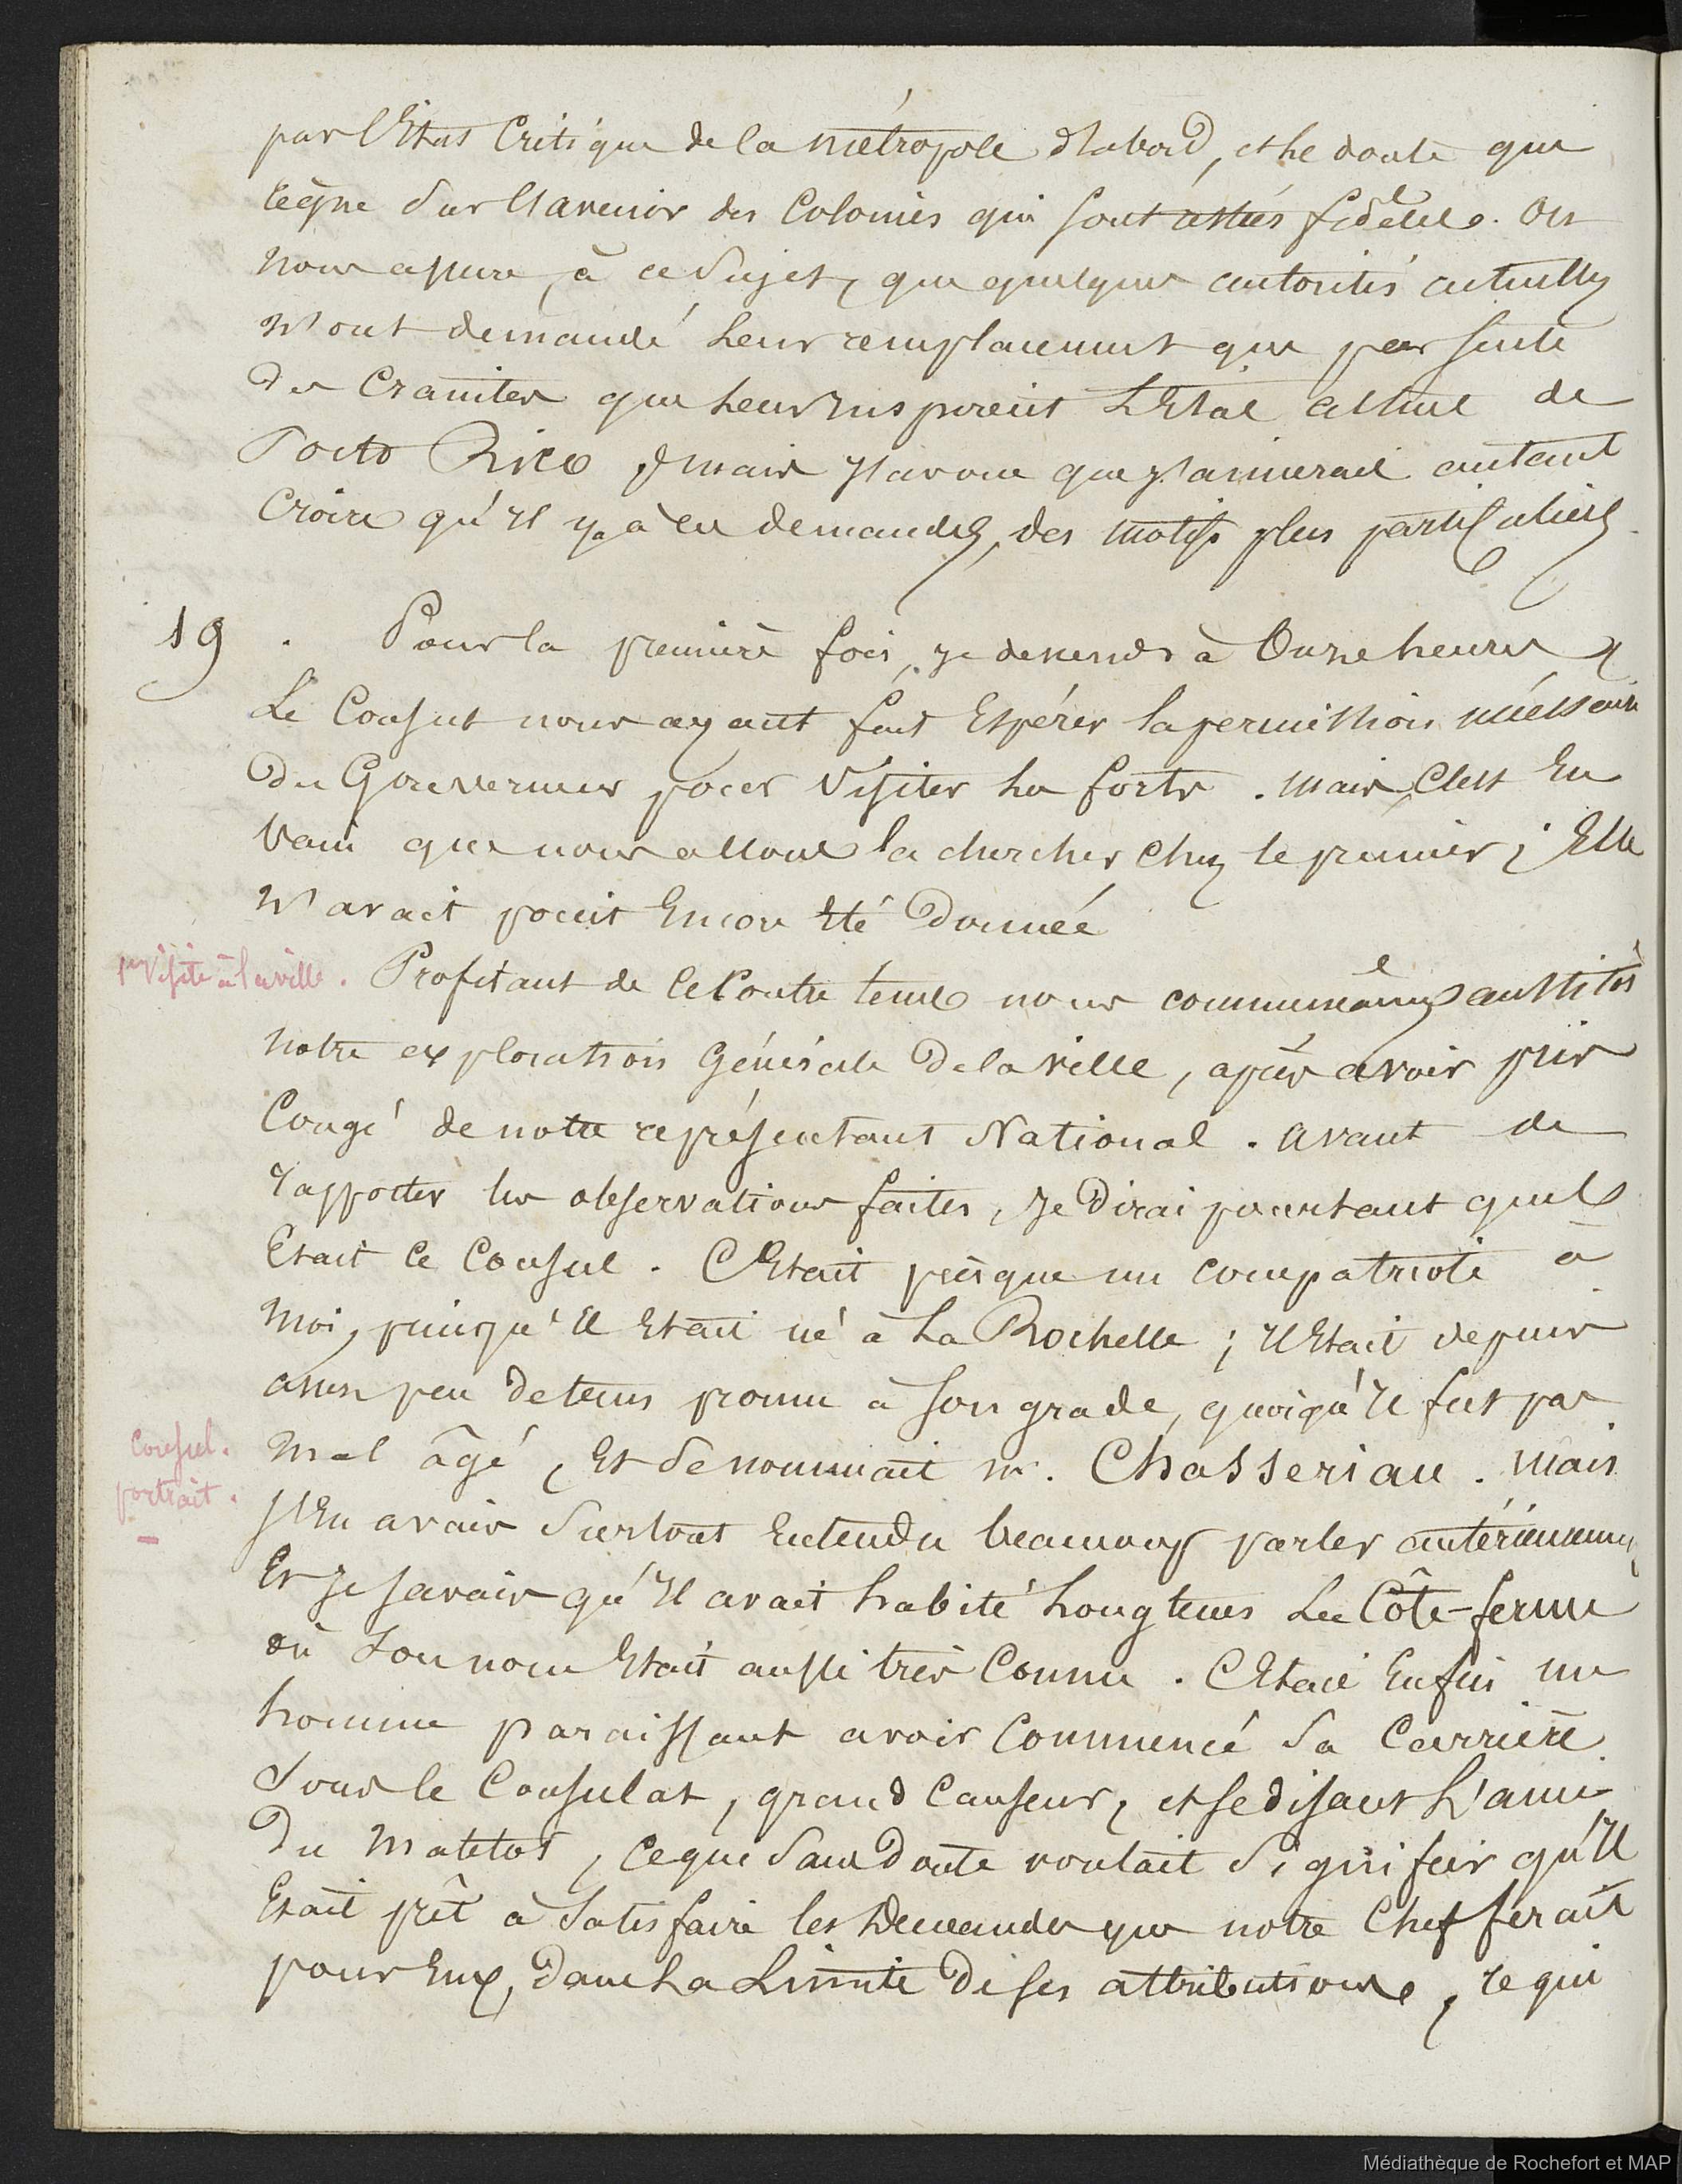 par l'Etat Critique de la métropole d'abord, et le doute qui
règne sur l'avenir des Colonies qui sont restées fidèles. On
nous assure, à ce sujet, que quelques autorités actuelles
n'ont demandé leur remplacement que par suite
des Craintes que leur inspirent L'Etat actuel de
Porto Rico ; mais j'avoue que j'aimerais autant
Croire qu'il y a à ces demandes, des motifs plus particuliers.
19 . Pour la première fois, je descends à Onze heures,
Le Consul nous ayant fait Espérer la permission nécessaire
Du Gouverneur pour Visiter les forts. mais C'est En
Vain que nous allons la chercher Chez le premier ; Elle
n'avait point Encore Eté Donnée
1ere Visite à la ville. Profitant de ce Contre tems nous commençames aussitôt
notre exploration Générale De la ville, après avoir pris
Congé de notre représentant National. avant de
rapporter les observations faites, je Dirai pourtant quel
Etait ce Consul. C'Etait presque un compatriote à
moi, puisqu'il Etait né à La Rochelle ; il Etait depuis
assez peu de tems promu à son grade, quoiqu'il fut pas
Consul. mal âgé, Et se nommait mr. Chasseriau. mais
portrait. j'En avais surtout Entendu beaucoup parler antérieurement,
Et je savais qu'il avait habité longtems La Côte-ferme
où son nom Etait aussi très Connu. C'Etait Enfin un
homme paraissant avoir Commencé sa Carrière
sous le Consulat, grand Causeur, et se disant L'ami
Du matelot, ce qui sans Doute voulait signifier qu'il
Etait prêt à satisfaire les Demandes que notre Chef ferait
pour Eux, Dans La Limite de ses attributions, ce qui
Médiathèque de Rochefort et MAP